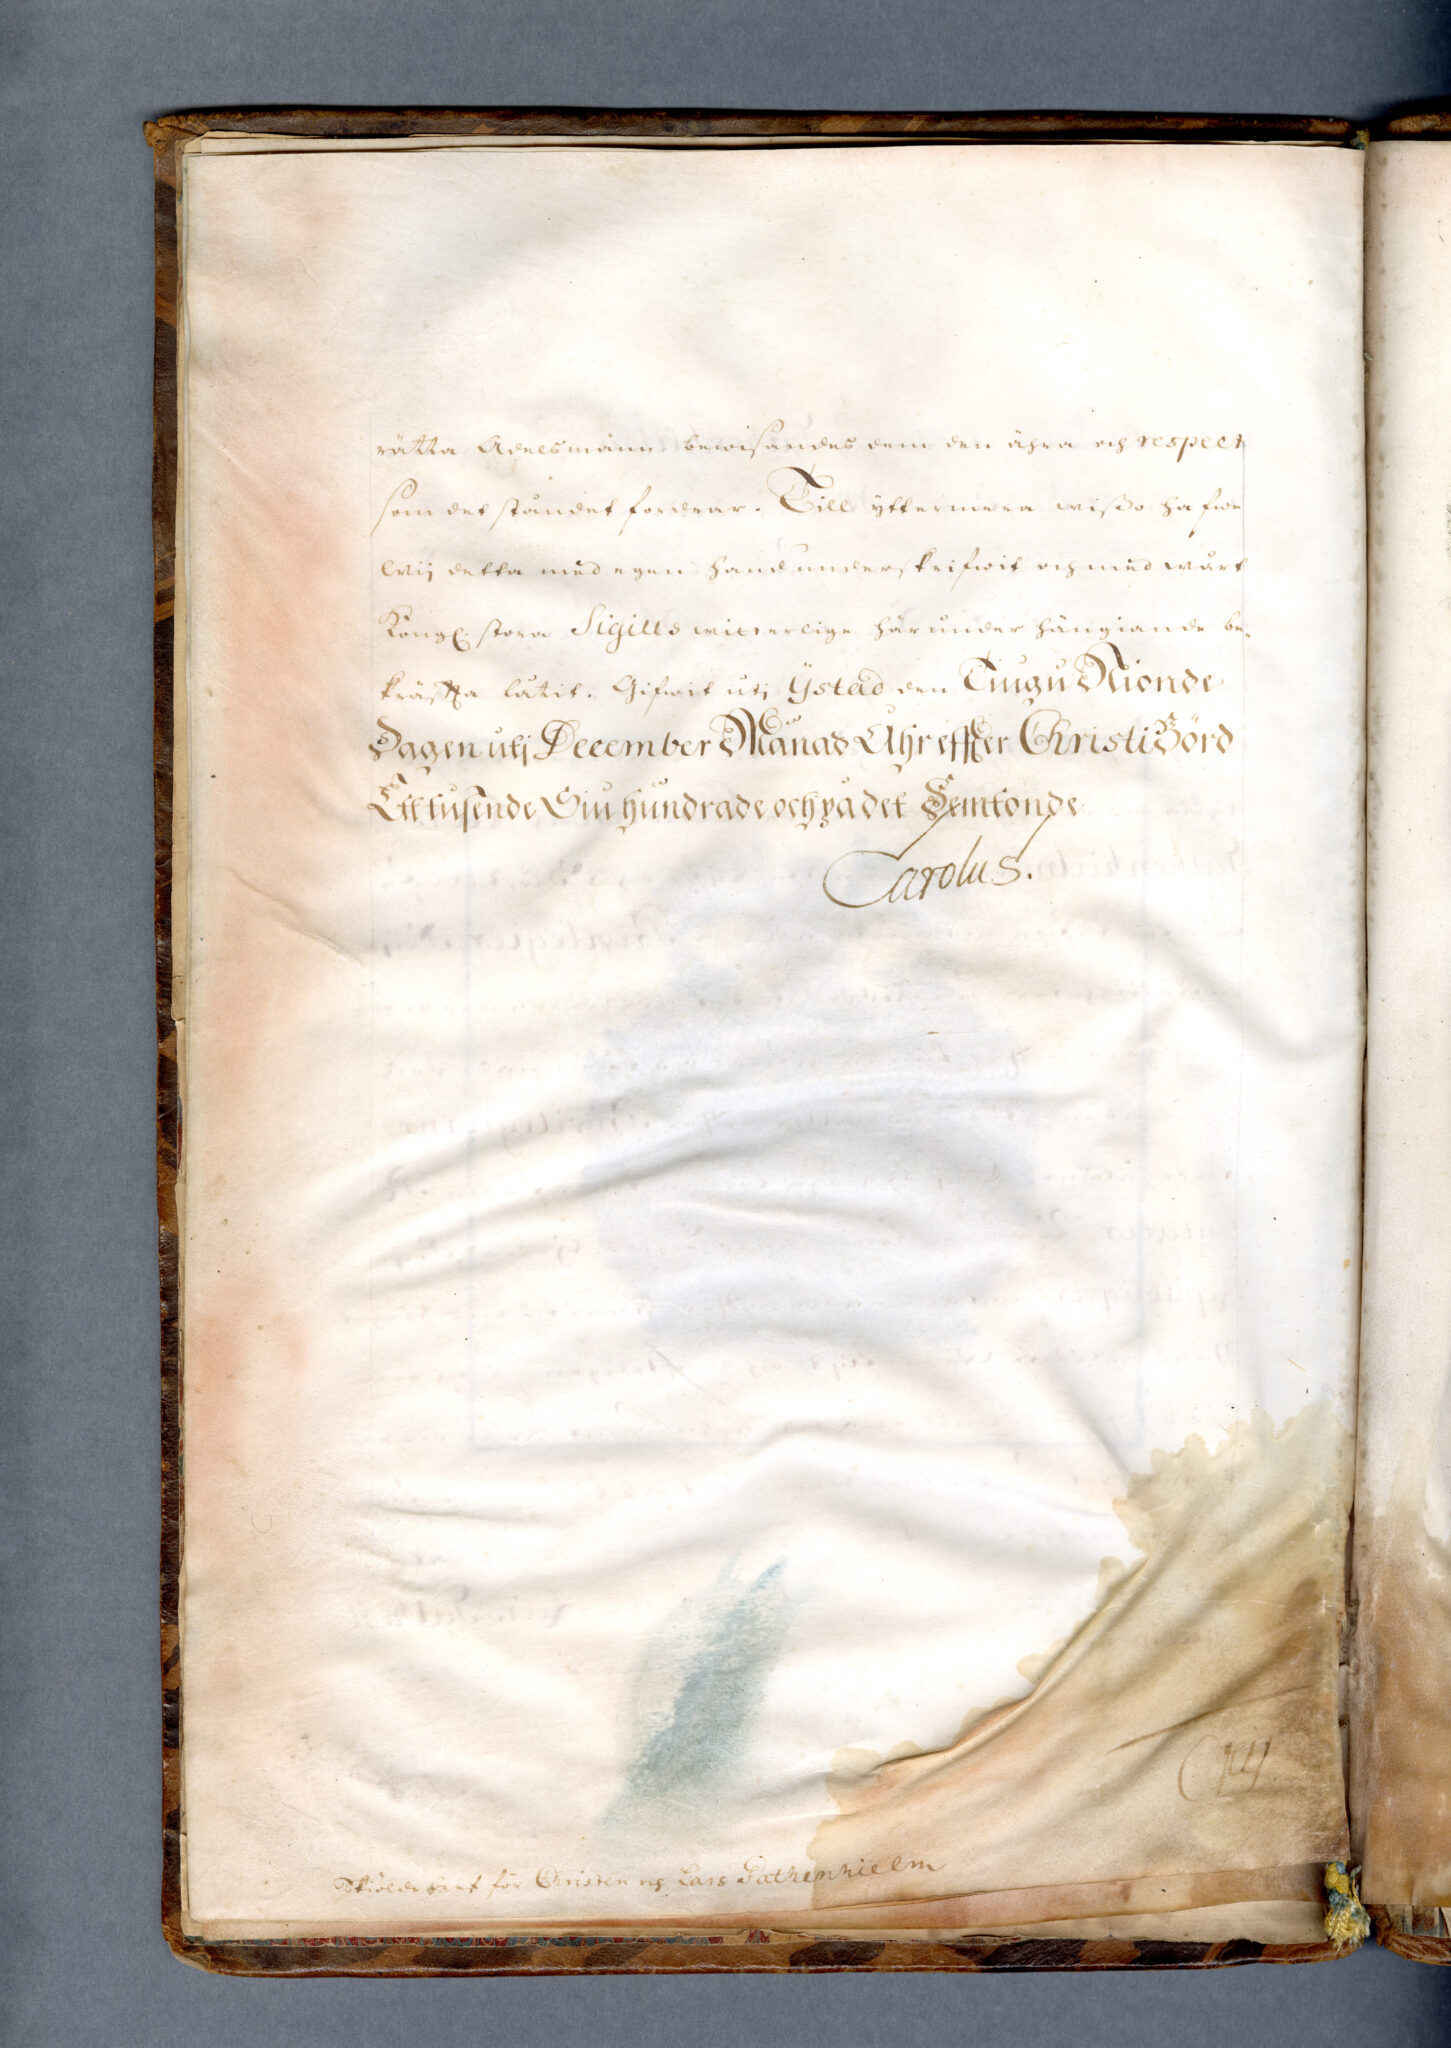 rätta Adelsmänn bewisandes dem den ähra och respect
som det ståndet fordrar. Till yttermera wißo hafwe
Wij detta med egen hand underskrifwit och med wårt
Kongl. stora Sigills witterlige härunder hängiande be-
kräffta låtit. Gifwit utj Ÿstad den Tiugu Nionde
Dagen utj December Månad Åhr effter Christi Börd
Ett tusende Siu hundrade och på det Femtonde
Carolus.
Skiölde bref för Christen och Lars Gathenhielm